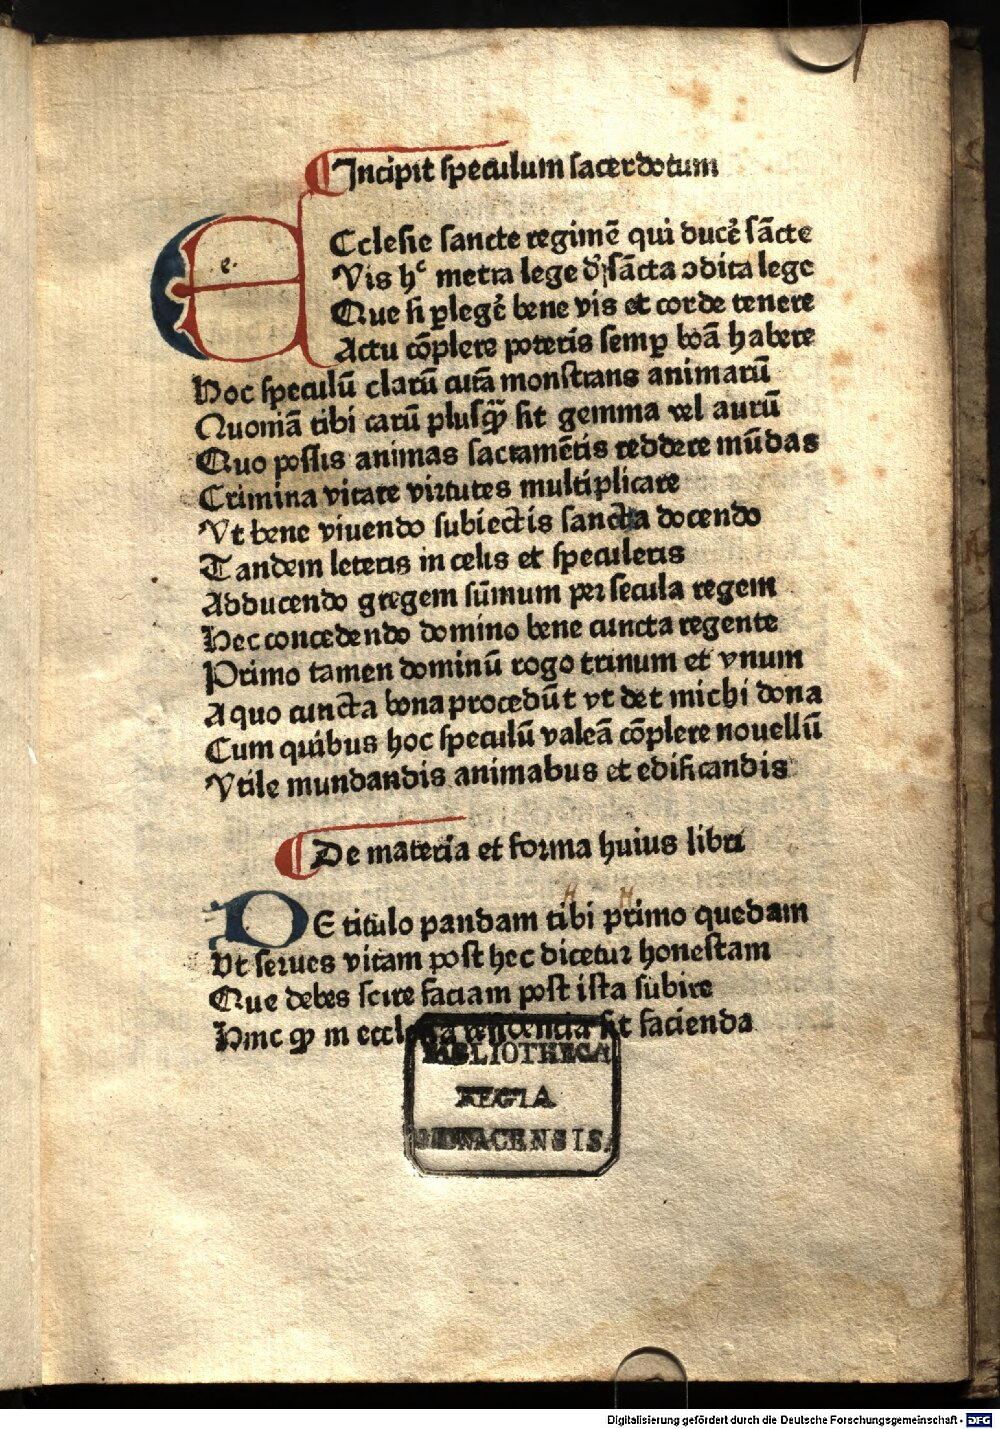 Incipit speculum sacerdotum
e.
ECclesie sancte regimē qui ducē̉ sācte
Vis hᶜ metra lege sācta ↄdita lege
Que si ꝑlegē̉ bene vis et corde tenere
Actu cōplere poteris semꝑ boā habere
Hoc speculū clarū curā monstrans animarū
Quoniā tibi carū plusꝙ̄ sit gemma vel aurū
Quo possis animas sacramētis reddere mūdas
Crimina vitare virtutes multiplicare
Vt bene viuendo subiectis sancta docendo
Tandem leteris in celis et speculeris
Adducendo gregem sūmum per secula regem
Hec concedendo domino bene cuncta regente
Primo tamen dominū rogo trinum et vnum
A quo cuncta bona procedūt vt det michi dona
Cum quibus hoc speculū valeā cōplere nouellū
Vtile mundandis animabus et edificandis
De materia et forma huius libri
DE titulo pandam tibi primo quedam
Vt serues vitam post hec dicetur honestam
Que debes scire faciam post ista subire
Hinc ꝙ in ecclesia sit facienda
BIBLIOTHECA
REGIA
MONACENSIS.
Digitalisierung gefördert durch die Deutsche Forschungsgemeinschaft - DFG